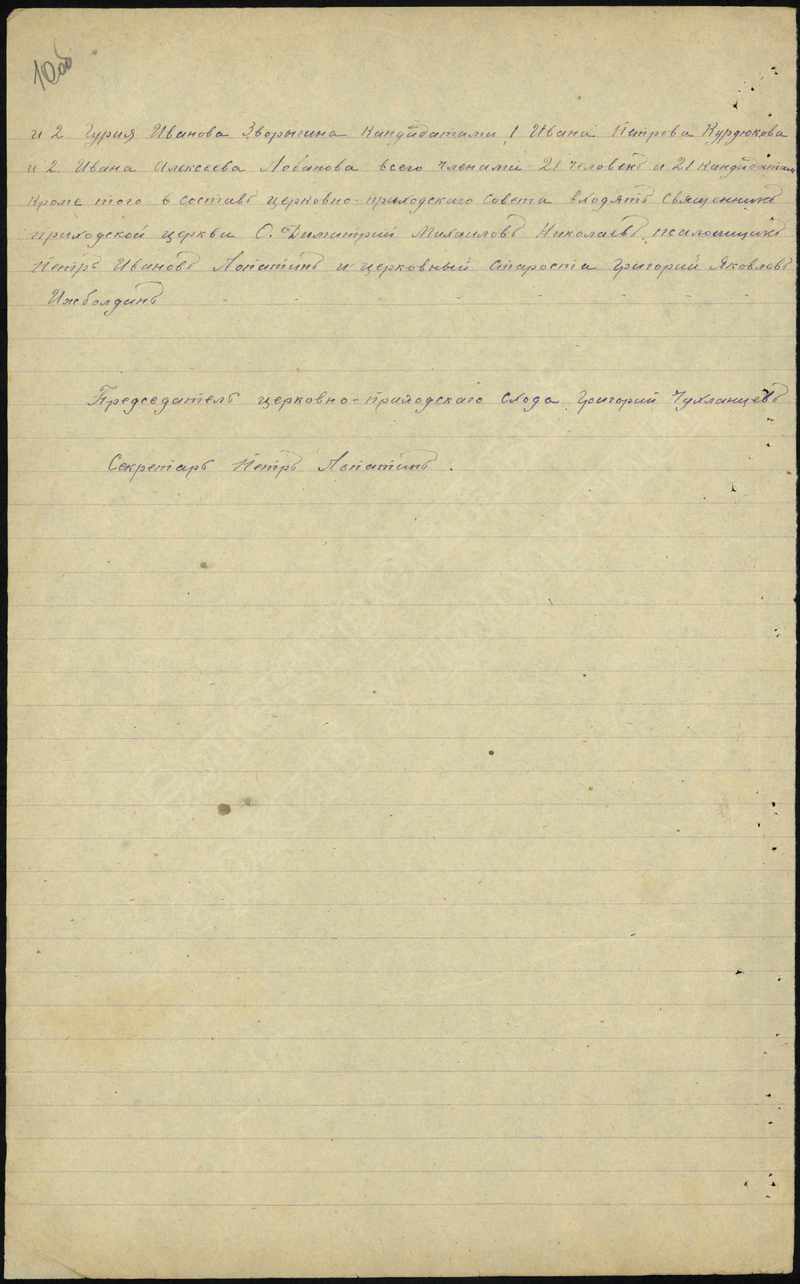 10об
и 2 Гурия Иванова Зворыгина кандидатами 1 Ивана Петрова Курдюкова
и 2 Ивана Алексеева Лобанова всего членами 21 человекъ и 21 кандидатами
кроме того в составъ церковно-приходскаго совета входятъ священникъ
приходской церкви О. Димитрий Михаиловъ Николаевъ, псаломщикъ
Петръ Ивановъ Лопатинъ и церковный староста Григорий Яковлевъ
Ижболдинъ
Председатель церковно-приходскаго схода Григорий Чухланцевъ
Секретарь Петръ Лопатинъ.